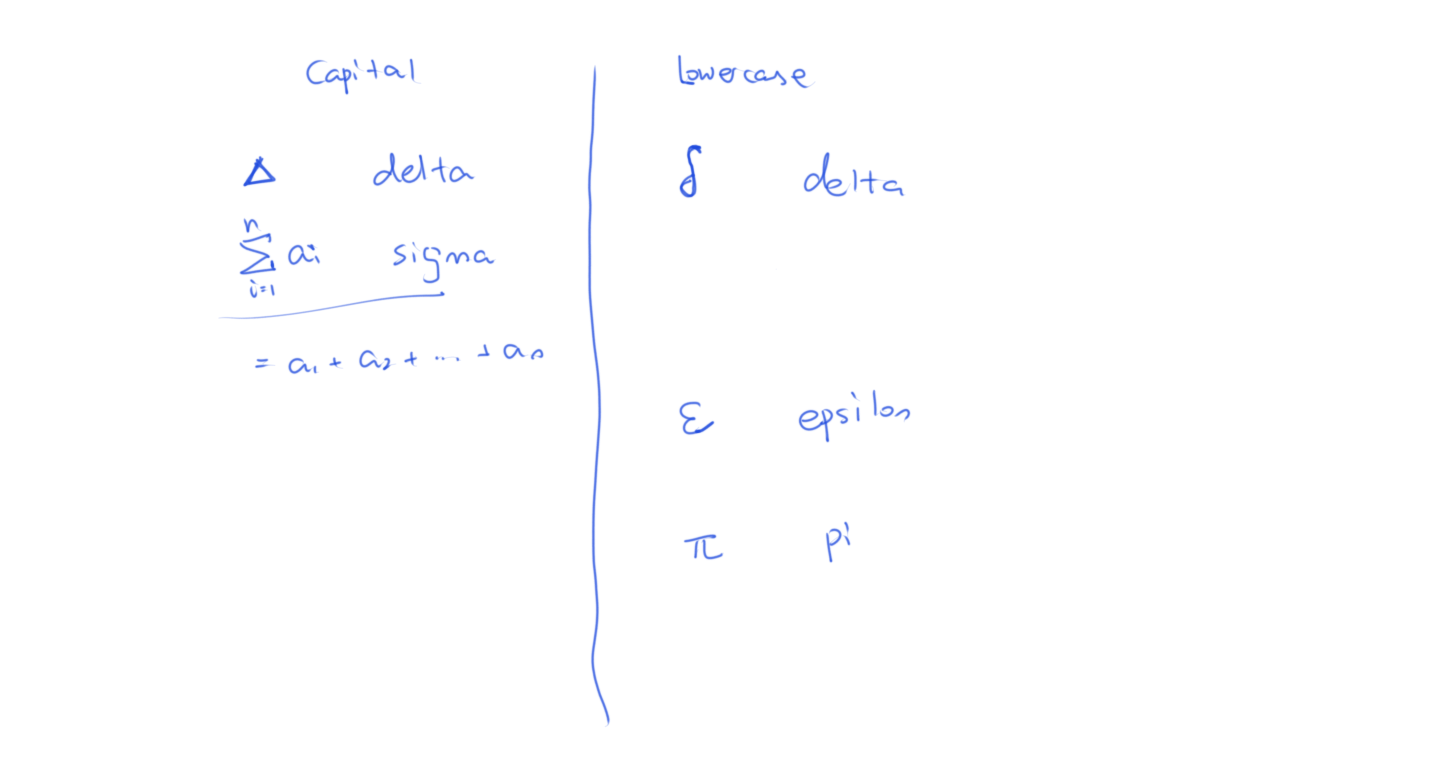 Capital
Δ delta
n
Σ aᵢ sigma
i=1
= a₁ + a₂ + ... + aₙ
Lowercase
δ delta
ε epsilon
π pi